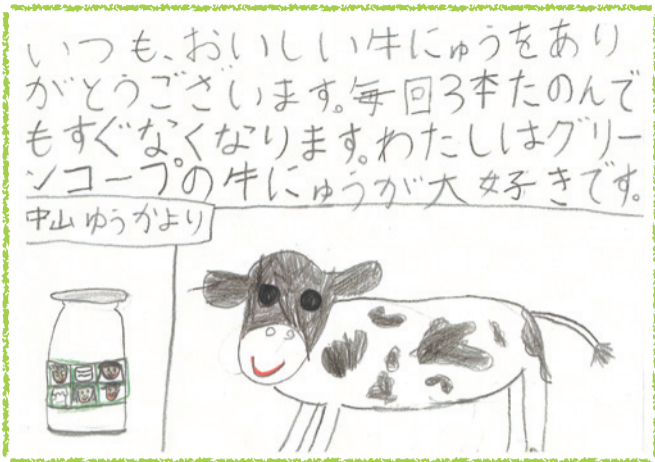 いつも、おいしい牛にゅうをあり
がとうございます。毎回3本たのんで
もすぐなくなります。わたしはグリー
ンコープの牛にゅうが大好きです。
中山ゆうかより